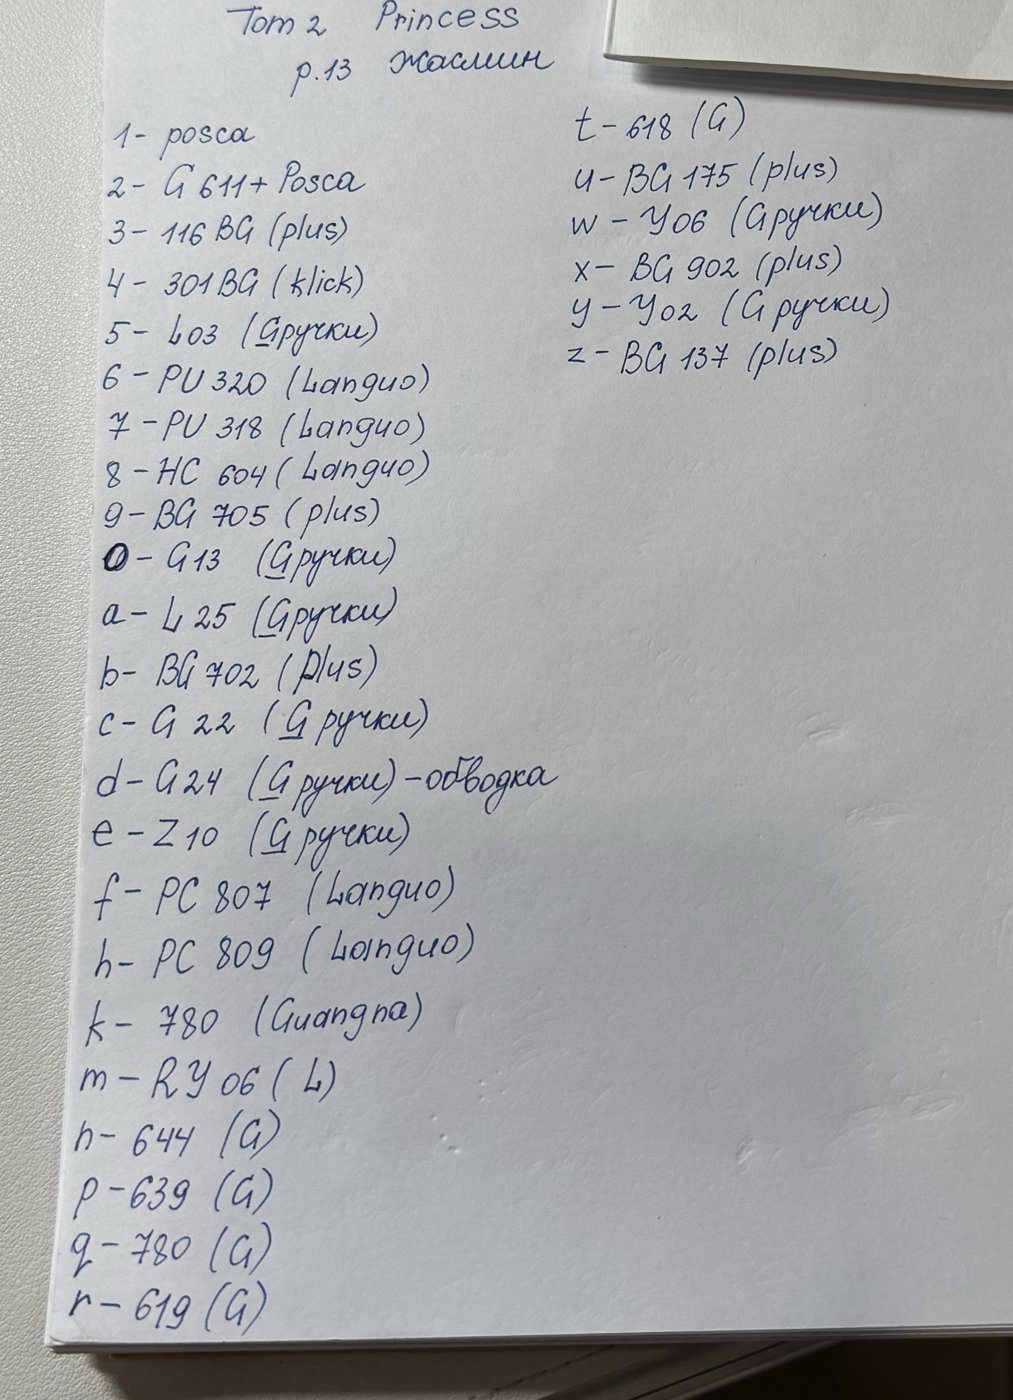 Tom 2 Princess
p.13 Жасмин
1- posca
2- G 611+ Posca
3- 116 BG (plus)
4- 301 BG (klick)
5- L03 (G ручки)
6 - PU 320 (Languo)
7 - PU 318 (Languo)
8 - HC 604 (Languo)
9 - BG 705 (plus)
0 - G13 (G ручки)
a - L 25 (G ручки)
b- BG 702 (plus)
c - G 22 (G ручки)
d - G24 (G ручки) - обводка
e - Z10 (G ручки)
f - PC 807 (Languo)
h- PC 809 (Languo)
k - 780 (Guangna)
m - RY 06 (L)
n- 644 (G)
p - 639 (G)
q - 780 (G)
r - 619 (G)
t - 618 (G)
u - BG 175 (plus)
w - Y06 (G ручки)
x - BG 902 (plus)
y - Y02 (G ручки)
z - BG 137 (plus)